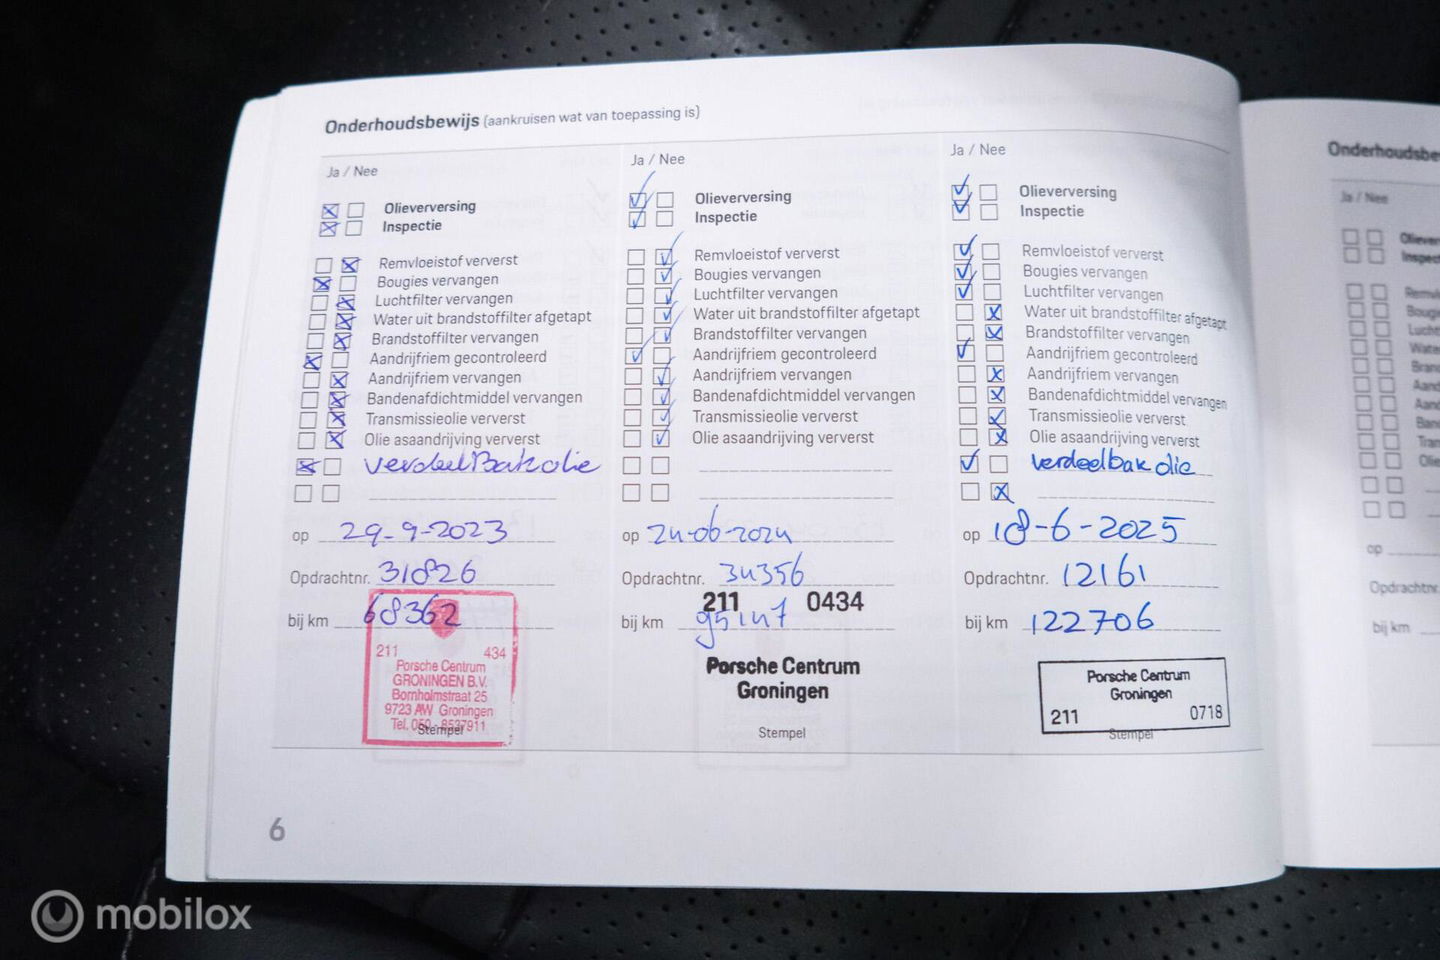 Onderhoudsbewijs (aankruisen wat van toepassing is)
Ja / Nee
Olieverversing
Inspectie
Remvloeistof ververst
Bougies vervangen
Luchtfilter vervangen
Water uit brandstoffilter afgetapt
Brandstoffilter vervangen
Aandrijfriem gecontroleerd
Aandrijfriem vervangen
Bandenafdichtmiddel vervangen
Transmissieolie ververst
Olie asaandrijving ververst
verdeelBak olie
op 29-9-2023
Opdrachtnr. 31826
bij km 68362
211 434
Porsche Centrum
GRONINGEN B.V.
Bornholmstraat 25
9723 AW Groningen
Tel. 050 - 8537911
Stempel
Ja / Nee
Olieverversing
Inspectie
Remvloeistof ververst
Bougies vervangen
Luchtfilter vervangen
Water uit brandstoffilter afgetapt
Brandstoffilter vervangen
Aandrijfriem gecontroleerd
Aandrijfriem vervangen
Bandenafdichtmiddel vervangen
Transmissieolie ververst
Olie asaandrijving ververst
op 24-06-2024
Opdrachtnr. 34356
211 0434
bij km 95147
Porsche Centrum
Groningen
Stempel
Ja / Nee
Olieverversing
Inspectie
Remvloeistof ververst
Bougies vervangen
Luchtfilter vervangen
Water uit brandstoffilter afgetapt
Brandstoffilter vervangen
Aandrijfriem gecontroleerd
Aandrijfriem vervangen
Bandenafdichtmiddel vervangen
Transmissieolie ververst
Olie asaandrijving ververst
verdeelbak olie
op 18-6-2025
Opdrachtnr. 12161
bij km 122706
Porsche Centrum
Groningen
211 0718
Stempel
6
Onderhoudsbe
Ja / Nee
op
Opdrachtnr.
bij km
mobilox